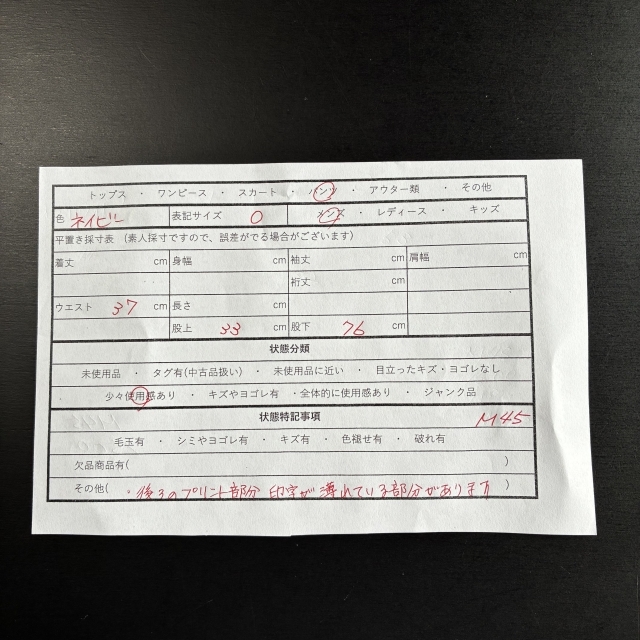 トップス ・ ワンピース ・ スカート ・ パンツ ・ アウター類 ・ その他
色 ネイビー 表記サイズ 0 メンズ ・ レディース ・ キッズ
平置き採寸表 (素人採寸ですので、誤差がでる場合がございます)
着丈 cm 身幅 cm 袖丈 cm 肩幅 cm
裄丈 cm
ウエスト 37 cm 長さ cm
股上 33 cm 股下 76 cm
状態分類
未使用品 ・ タグ有(中古品扱い) ・ 未使用品に近い ・ 目立ったキズ・ヨゴレなし
少々使用感あり ・ キズやヨゴレ有 ・全体的に使用感あり ・ ジャンク品
状態特記事項 M45
毛玉有 ・ シミやヨゴレ有 ・ キズ有 ・ 色褪せ有 ・ 破れ有
欠品商品有( )
その他( ・後ろのプリント部分 印字が薄れている部分があります )